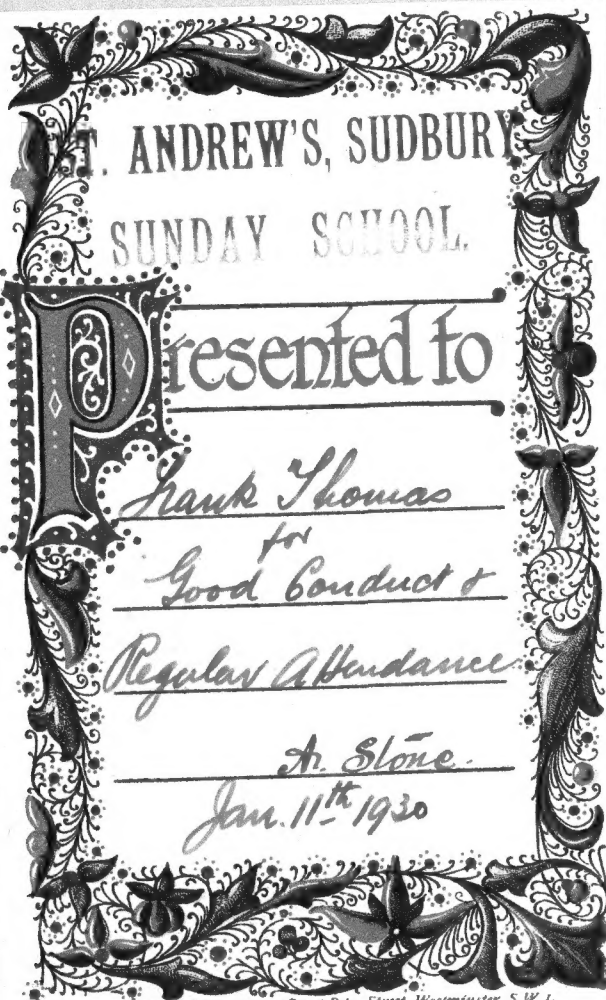 ST. ANDREW'S, SUDBURY
SUNDAY SCHOOL.
Presented to
Frank Thomas
for
Good Conduct &
Regular Attendance
Jan. 11th 1930
Street, Westminster, S.W.1.